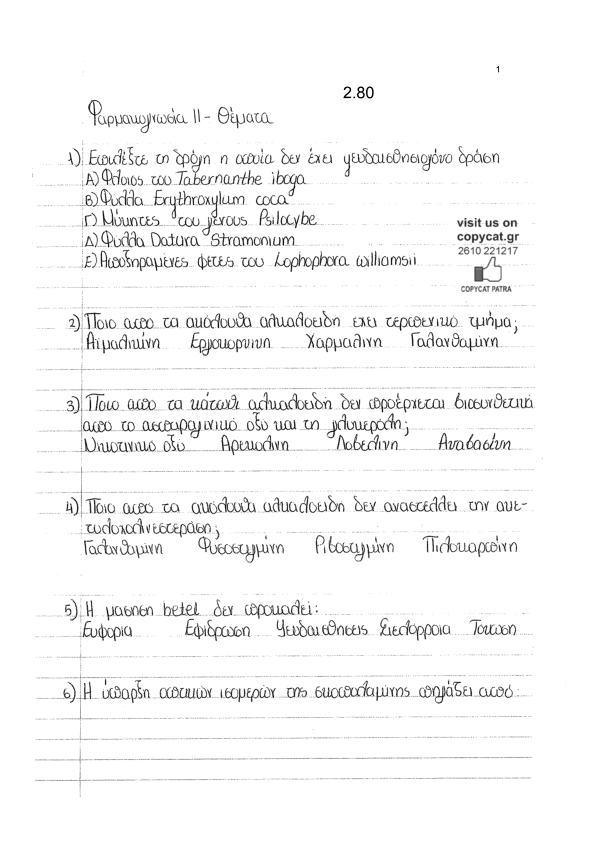 1
2.80
Φαρμακογνωσία ΙΙ - Θέματα
1) Επιλέξτε τη δρόγη η οποία δεν έχει ψευδαισθησιογόνο δράση
Α) Φλοιος του Tabernanthe iboga
Β) Φύλλα Erythroxylum coca
Γ) Μύκητες του γένους Psilocybe
Δ) Φύλλα Datura Stramonium
Ε) Αποξηραμένες φέτες του Lophophora williamsii
visit us on
copycat.gr
2610 221217
COPYCAT PATRA
2) Ποιο απο τα ακόλουθα αλκαλοειδη εχει τερπενικο τμήμα;
Αϊμαλικίνη Εργοκορνινη Χαρμαλινη Γαλανθαμίνη
3) Ποιο απο τα κάτωθι αλκαλοειδή δεν προέρχεται βιοσυνθετικά
απο το ασπαραγινικό οξυ και τη γλυκερόλη;
Νικοτινικο οξύ Αρεκολινη Λοβελινη Αναβασίνη
4) Ποιο απο τα ακόλουθα αλκαλοειδη δεν αναστέλλει την ακε-
τυλοχολινεστεράση;
Γαλανθαμίνη Φυσοστιγμίνη Ριβοστιγμίνη Πιλοκαρπίνη
5) Η μασηση betel δεν προκαλεί:
Ευφορια Εφίδρωση Ψευδαισθήσεις Σιελόρροια Τονωση
6) Η ύπαρξη οπτικών ισομερών της σκοπολαμίνης πηγάζει από: